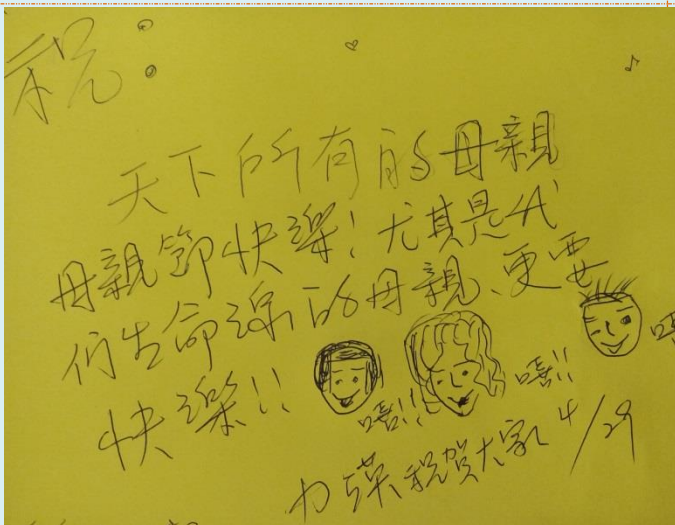 祝：
天下所有的母親
母親節快樂！尤其是代
們生命線的母親、更要
快樂！！
嘻！！
嘻！！
嘻
力漢祝賀大家 4/29